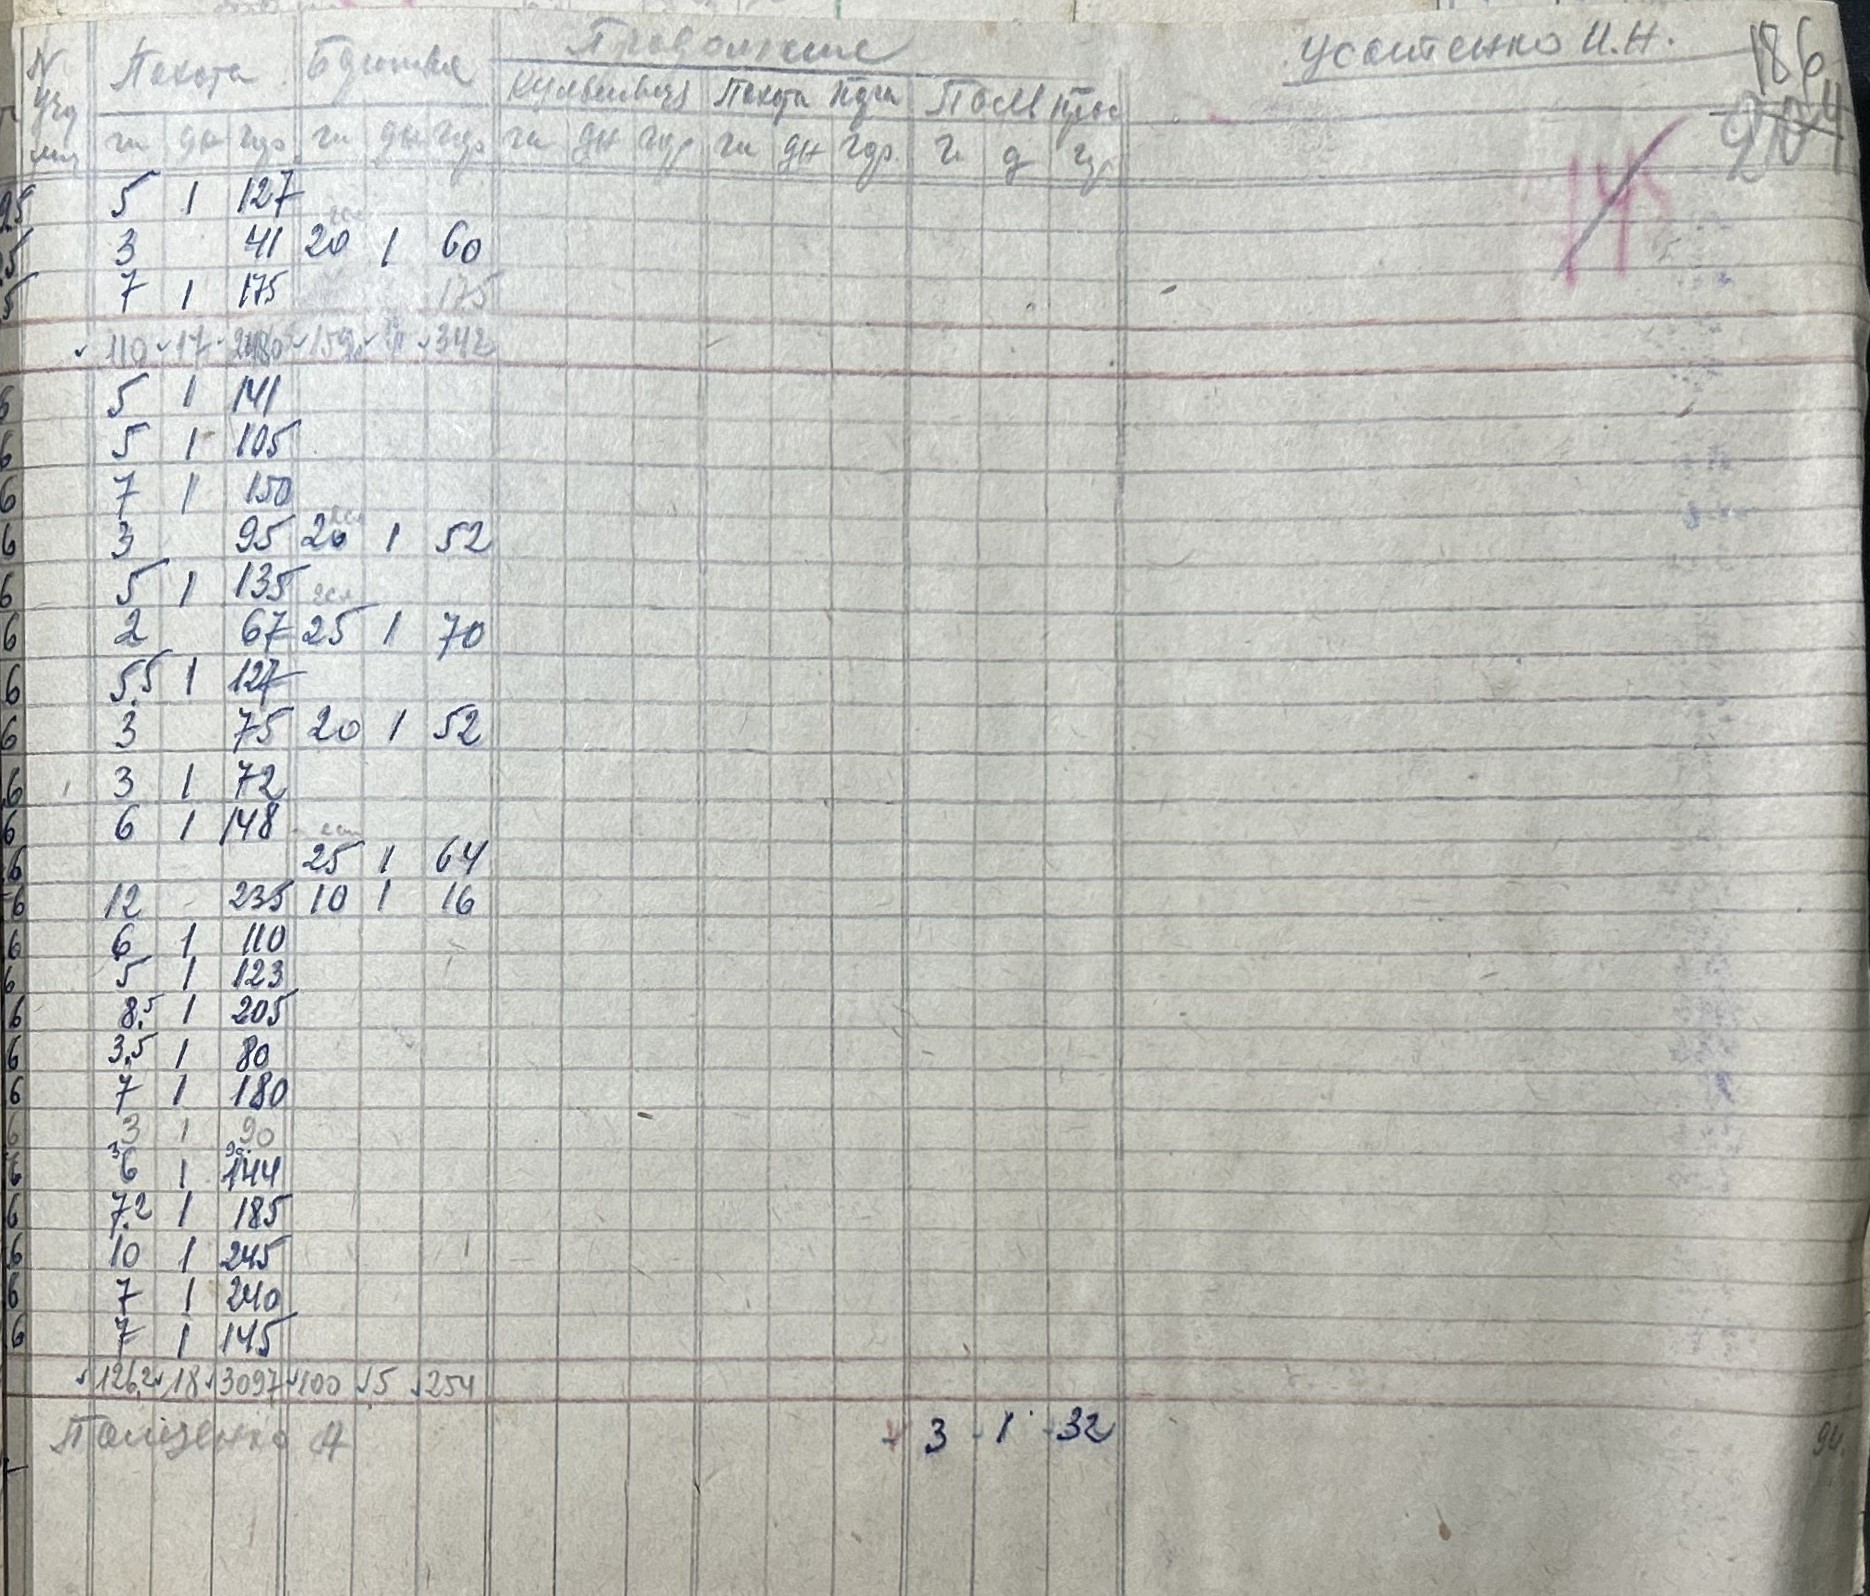 Усатенко И.Н.
186
204
145
N Пахота Бзитва
Культивац Пахота Пдга Посев
га дн гдр га дн гдр га дн гдр га дн гдр г д гр
25 5 1 127
5 3 41 20 1 60
5 7 1 175 175
110 17 2480 159 342
6 5 1 141
6 5 1 105
6 7 1 150
6 3 95 20 1 52
6 5 1 135
6 2 67 25 1 70
6 5.5 1 127
6 3 75 20 1 52
6 3 1 72
6 6 1 148
6 25 1 64
6 12 235 10 1 16
6 6 1 110
6 5 1 123
6 8,5 1 205
6 3,5 1 80
6 7 1 180
6 3 1 90
6 6 1 144
6 7.2 1 185
6 10 1 245
6 7 1 240
6 7 1 145
126,2 18 3097 100 5 254
3 - 1 - 32
94.